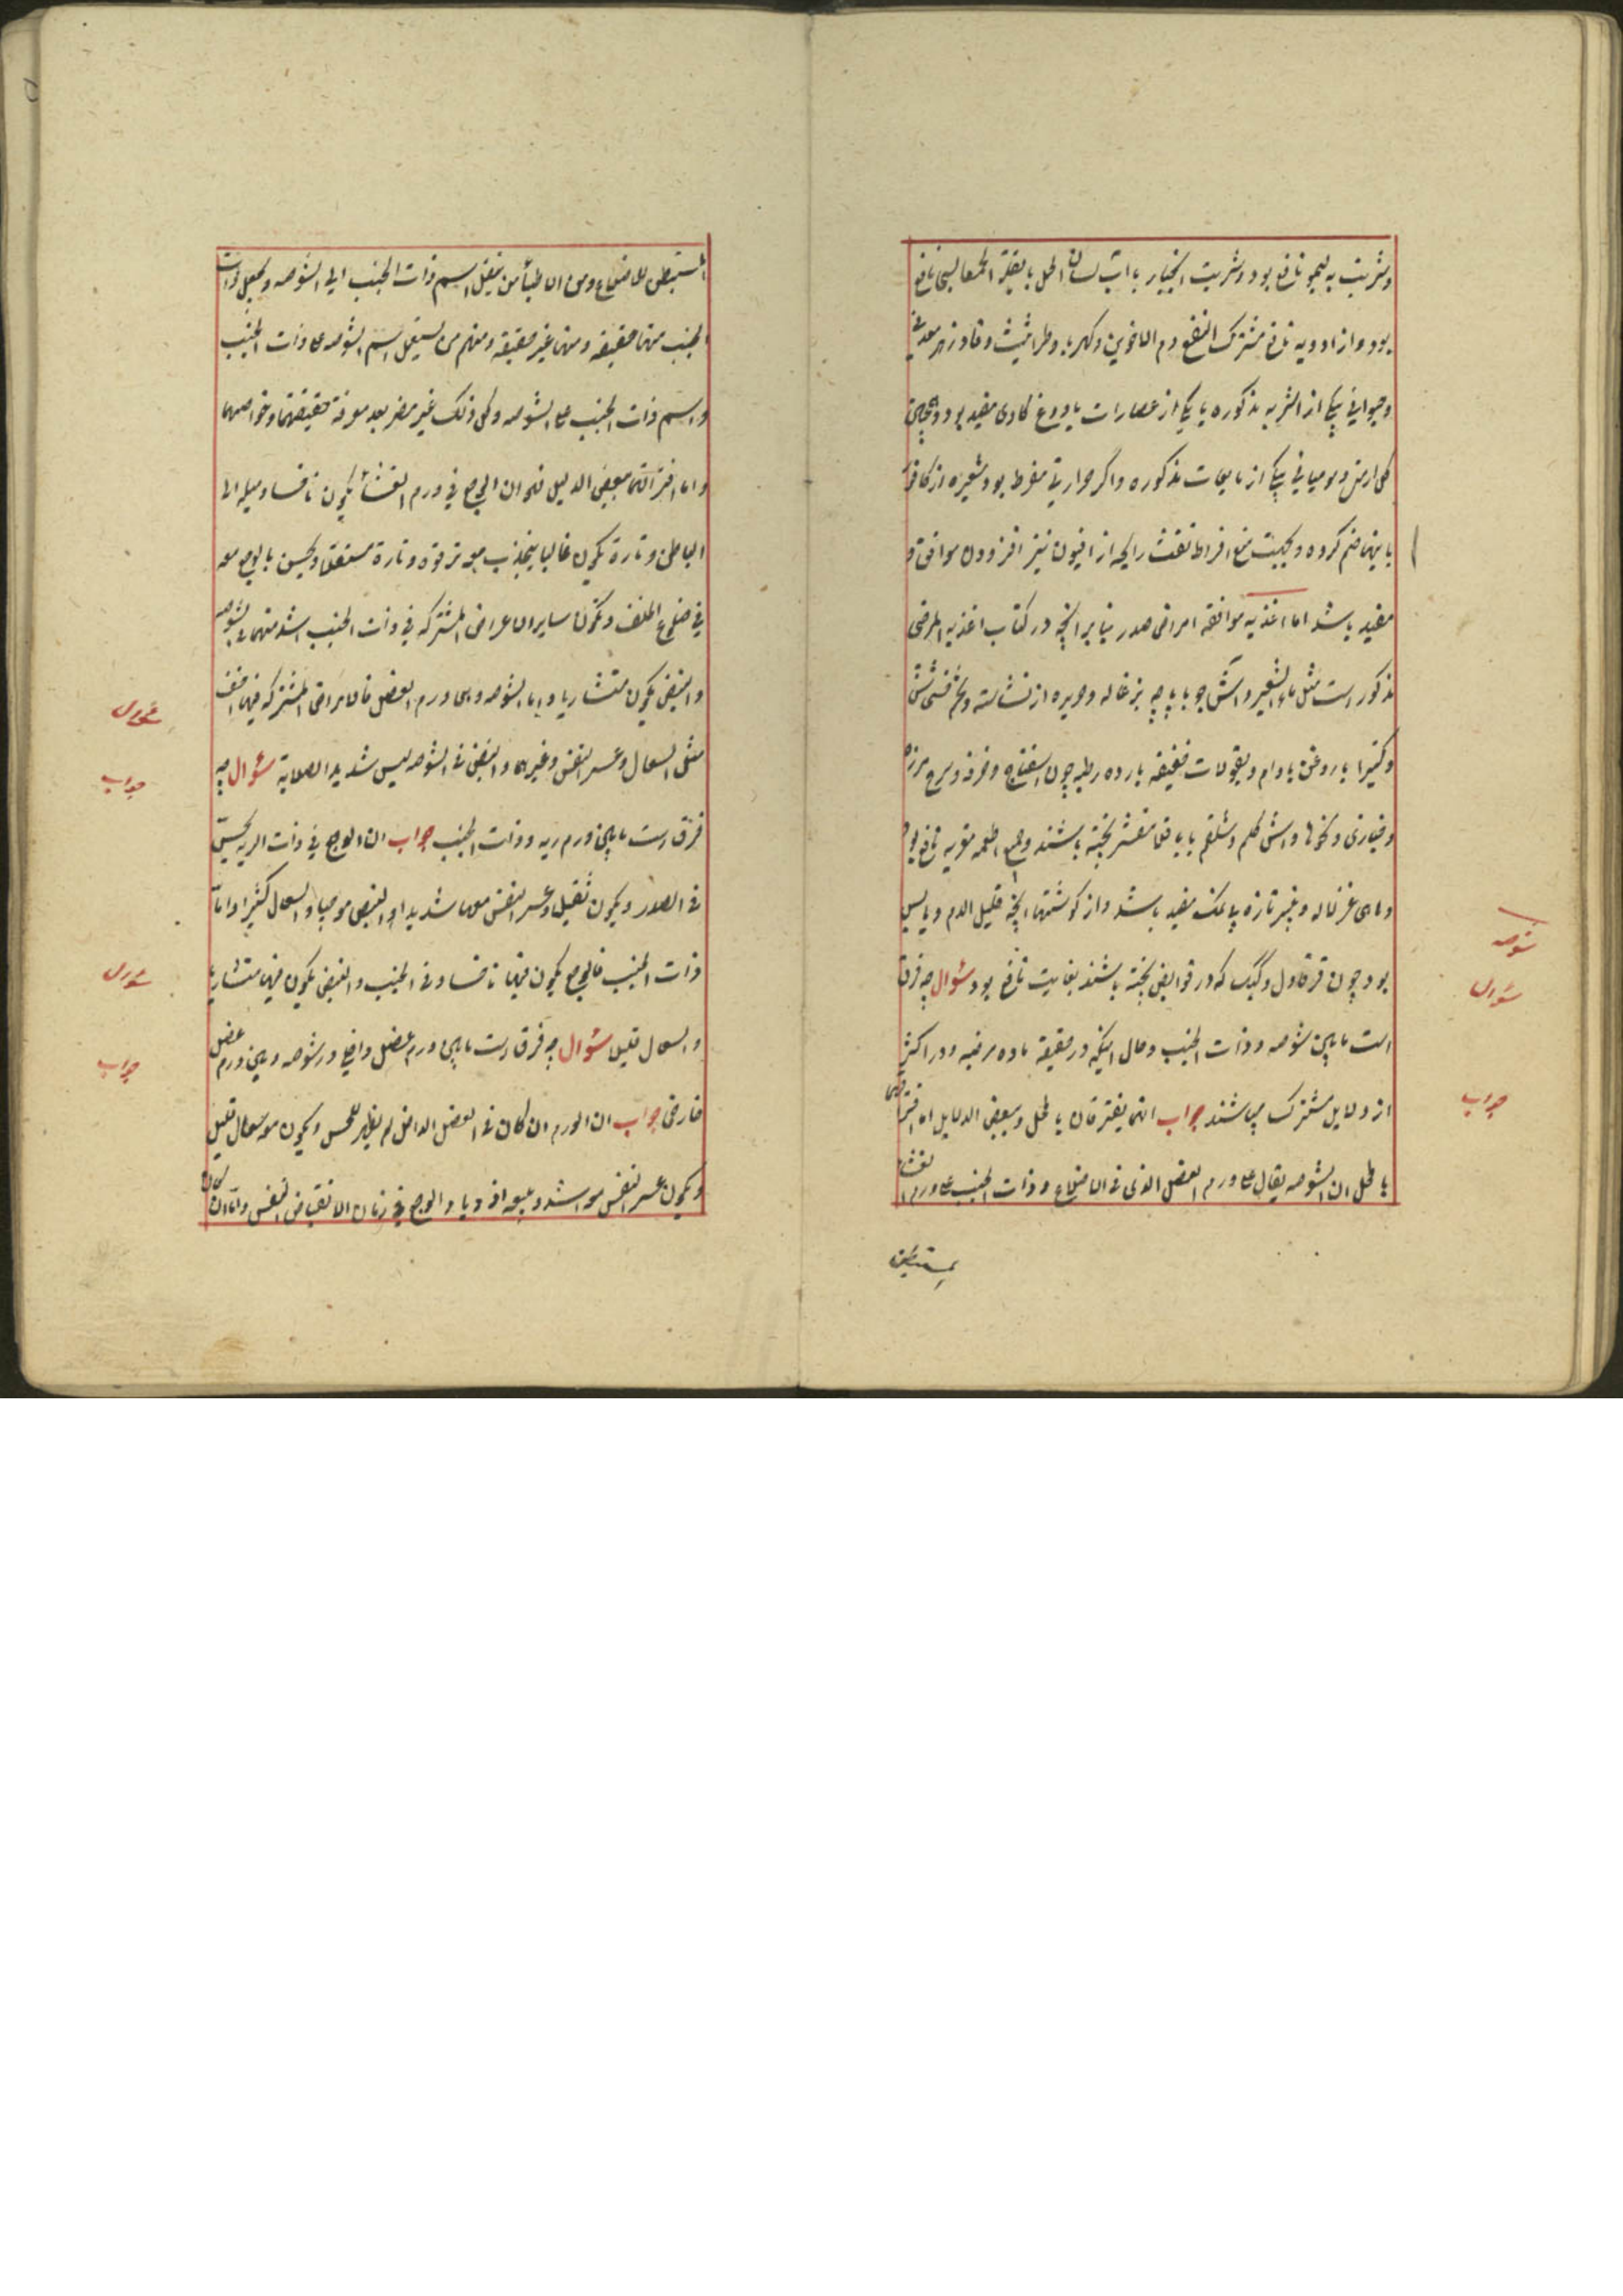 و شربت به لیمو نافع بود و شربت انجبار با آب لسان الحمل یا بقلة الحمقا بسی نافع
بود و از ادویه نافع مشترک النفع دم الاخوین و کهربا و طراثیث و فادزهر معدنی
و حیوانی بیکی از اشربه مذکوره یا یکی از عصارات یا دوغ گاوی مفید بود و همچنین
گل ارمنی و مومیایی بیکی از مایعات مذکوره و اگر حرارتی مفرط بود شعیره از کافور
باینها ضم کرده و بجهت منع افراط نفث رایجه از افیون نیز افزودن موافق و
مفید باشد اما اغذیه موافقه امراض صدر بنابر آنچه در کتاب اغذیه المرضی
مذکور است مثل ماء الشعیر و آش جو با پاچه بزغاله و حریره از نشاسته و تخم خشخاش
و کتیرا با روغن بادام و بقولات خفیفه بارده رطبه چون اسفناج و خرفه و سرمج
و خیاری و کدوها و آش کلم و شلغم با باقلا مقشر پخته باشند و جمیع اطعمه مغریه نافع بود
و ماهی و پنیر تازه بی نمک مفید باشد و از گوشتها آنچه قلیل الدم و یابس
بود چون قرقاول و کبک که در قوابض پخته باشند بغایت نافع بود سؤال چه فرق
است مابین شوصه و ذات الجنب و حال اینکه در حقیقة ماده مرضیه و در اکثر
از دلایل مشترک میباشند جواب انهما یفترقان بالمحل و ببعض الدلایل اما افتراقهما
بالمحل ان الشوصه یقال علی ورم العضل الذی فی الاضلاع و ذات الجنب علی ورم الغشاء
المستبطن
شوصه
سؤال
جواب
المستبطن للاضلاع و من الاطباء من ینقل اسم ذات الجنب الی الشوصه و یجعل ذات
الجنب منها حقیقیه و منها غیر حقیقیه و منهم من یستعمل اسم الشوصه علی ذات الجنب
و اسم ذات الجنب علی الشوصه و کل ذلک غیر مضر بعد معرفة حقیقتهما و خواصهما
و اما افتراقهما ببعض الدلیل فهو ان الوجع فی ورم الغشاء یکون ناخسا و میله الی
الباطن و تارة یکون غالبا ینجذب معه ترقوه و تارة مستقلا و یحس بالوجع معه
فی ضلوع الخلف و تکون سایر الاعراض المشترکه فی ذات الجنب اشد منهما فی الشوصه
و النبض یکون منشاریا و اما الشوصه و هی ورم العضل فالاعراض المشترکه فیها اخف
مثل السعال و عسر النفس و غیرها و النبض فی الشوصه لیس شدید الصلابة سؤال چه
فرق است مابین ورم ریه و ذات الجنب جواب ان الوجع فی ذات الریه یحس
فی الصدر و یکون ثقیلا و عسر النفس معها شدیدا و النبض موجیا و السعال کثیرا و اما
ذات الجنب فالوجع یکون فیها ناخسا و فی الجنب و النبض یکون فیها منشاریا
و السعال قلیل سؤال چه فرق است مابین ورم عضل داخلی در شوصه و بین ورم عضل
خارجی جواب ان الورم ان کان فی العضل الداخل لم یظهر للحس و یکون معه سعال قلیل
و یکون عسر النفس معه اشد و الوجع فی زمان الانقباض النفس و اما ان کان
سؤال
جواب
سؤال
جواب